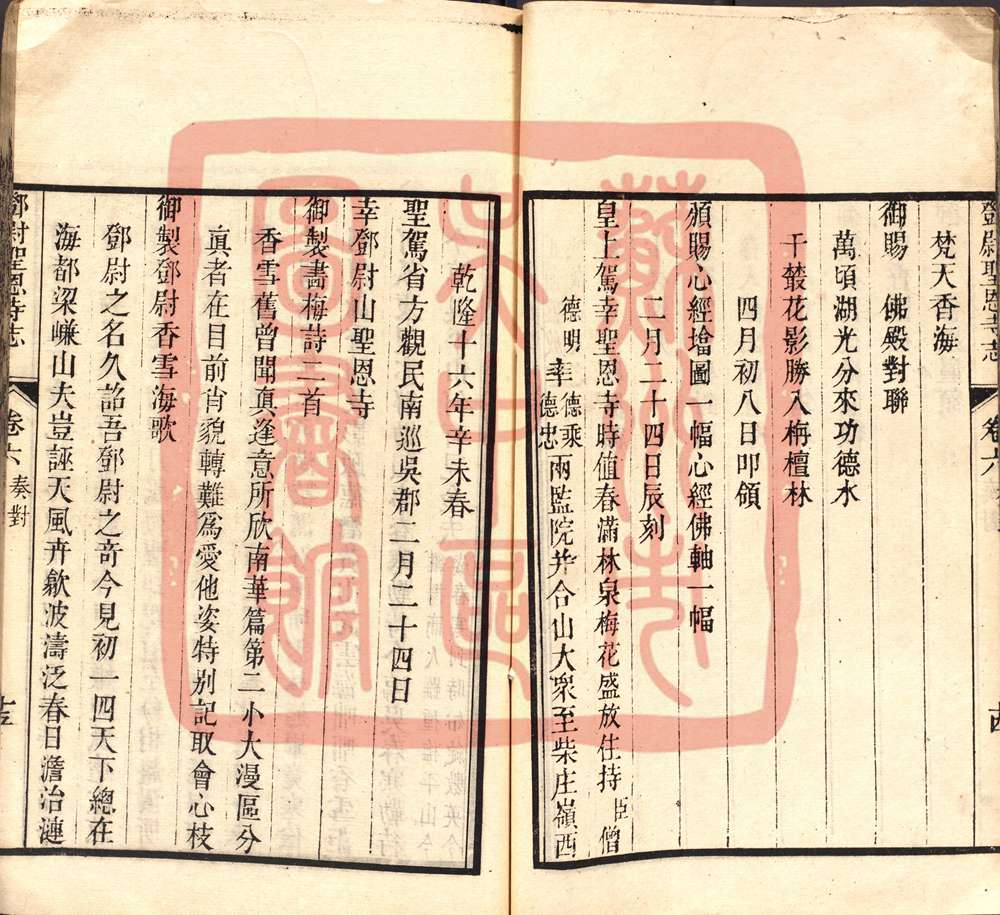 鄧尉聖恩寺志
卷六
梵天香海
御賜 佛殿對聯
萬頃湖光分來功德水
千叢花影勝入栴檀林
四月初八日叩領
頒賜心經墖圖一幅心經佛軸一幅
二月二十四日辰刻
皇上駕幸聖恩寺時值春滿林泉梅花盛放住持臣僧
德明率德乘德忠兩監院并合山大衆至柴庄嶺西
乾隆十六年辛未春
聖駕省方觀民南巡吳郡二月二十四日
幸鄧尉山聖恩寺
御製畵梅詩二首
香雪舊曾聞真逢意所欣南華篇第二小大漫區分
真者在目前肖貌轉難爲愛他姿特别記取會心枝
御製鄧尉香雪海歌
鄧尉之名久詒吾鄧尉之竒今見初一四天下總在
海都梁㠍山夫豈誣天風卉歙波濤泛春日澹冶漣
鄧尉聖恩寺志
卷六
奏對
蘇州市吳中區圖書館